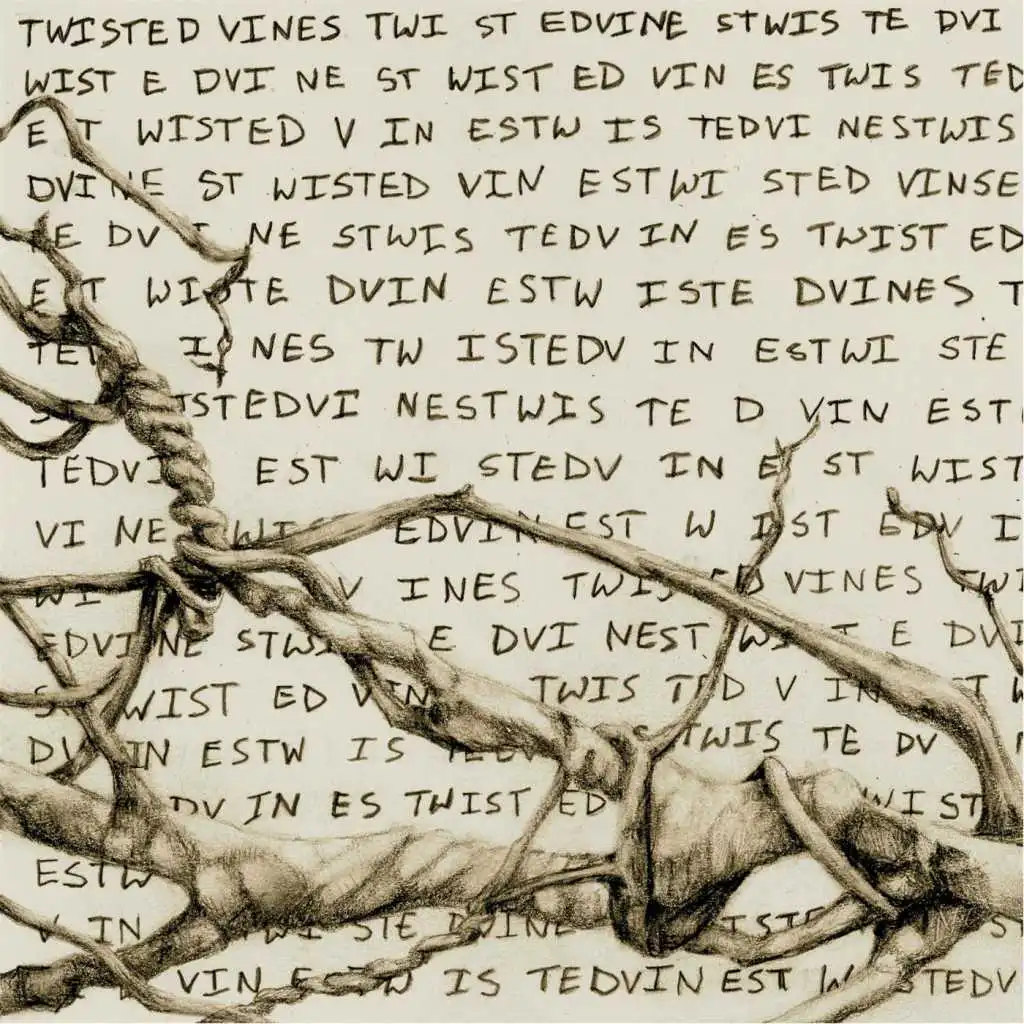 TWISTED VINES TWI ST EDVINE STWIS TE DVI
WIST E DVI NE ST WIST ED VIN ES TWIS TED
E T WISTED V IN ESTW IS TEDVI NESTWIS
DVINE ST WISTED VIN ESTWI STED VINSE
TE DV I NE STWIS TEDV IN ES TWIST ED
E T WISTE DVIN ESTW ISTE DVINES T
TEV I NES TW ISTEDV IN ESTWI STE
ISTEDVI NESTWIS TE D VIN EST
TEDVI EST WI STEDV IN E ST WIST
VI NE WIS EDVIN EST W IST EDV I
WI V INES TWISED VINES TWI
EDVINE STWI E DVI NEST WI T E DVI
S WIST ED VIN TWIS TED V IN T W
DV IN ESTW IS TEDV TWIS TE DV
DV IN ES TWIST ED WI ST
ESTW
V IN TWI STE DVINE ISTE IN S
VIN ESTW IS TEDVIN EST W STEDV